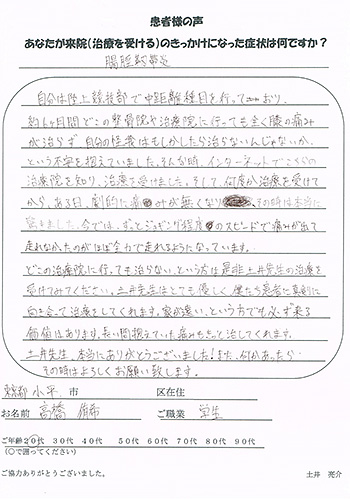 患者様の声
あなたが来院(治療を受ける)のきっかけになった症状は何ですか?
腸脛靭帯炎
自分は陸上競技部で中距離種目を行っており、
約6ヶ月間どこの整骨院や治療院に行っても全く膝の痛み
が治らず 自分の怪我はもしかしたら治らないんじゃないか、
という不安を抱えていました。そんな時、インターネットでこちらの
治療院を知り、治療を受けました。そして、何度か治療を受けて
から、ある日、劇的に痛みが無くなり その時は本当に
驚きました。今では、ずっとジョギング程度のスピードで痛みが出て
走れなかったのがほぼ全力で走れるようになっています。
どこの治療院に行っても治らない、という方は是非土井先生の治療を
受けてみてください。土井先生はとても優しく、僕たち患者に真剣に
向き合って治療をしてくれます。家が遠い、という方でも必ず来る
価値はあります。長い間抱えていた痛みもきっと治してくれます。
土井先生、本当にありがとうございました!また、何かあったら
その時はよろしくお願い致します。
東京都 小平 市 区在住
お名前 高橋 侑希 ご職業 学生
ご年齢 20代 30代 40代 50代 60代 70代 80代 90代
(○で囲ってください)
ご協力ありがとうございました。 土井 亮介